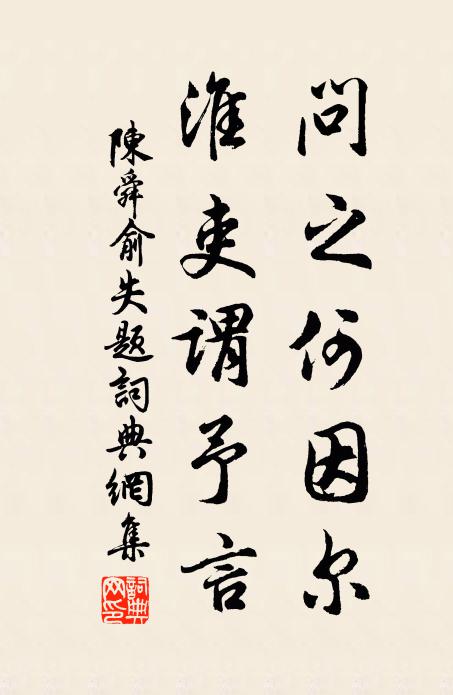 问之何因尔
淮吏謂予言
陳舜俞失題詞典網集
詞典网印